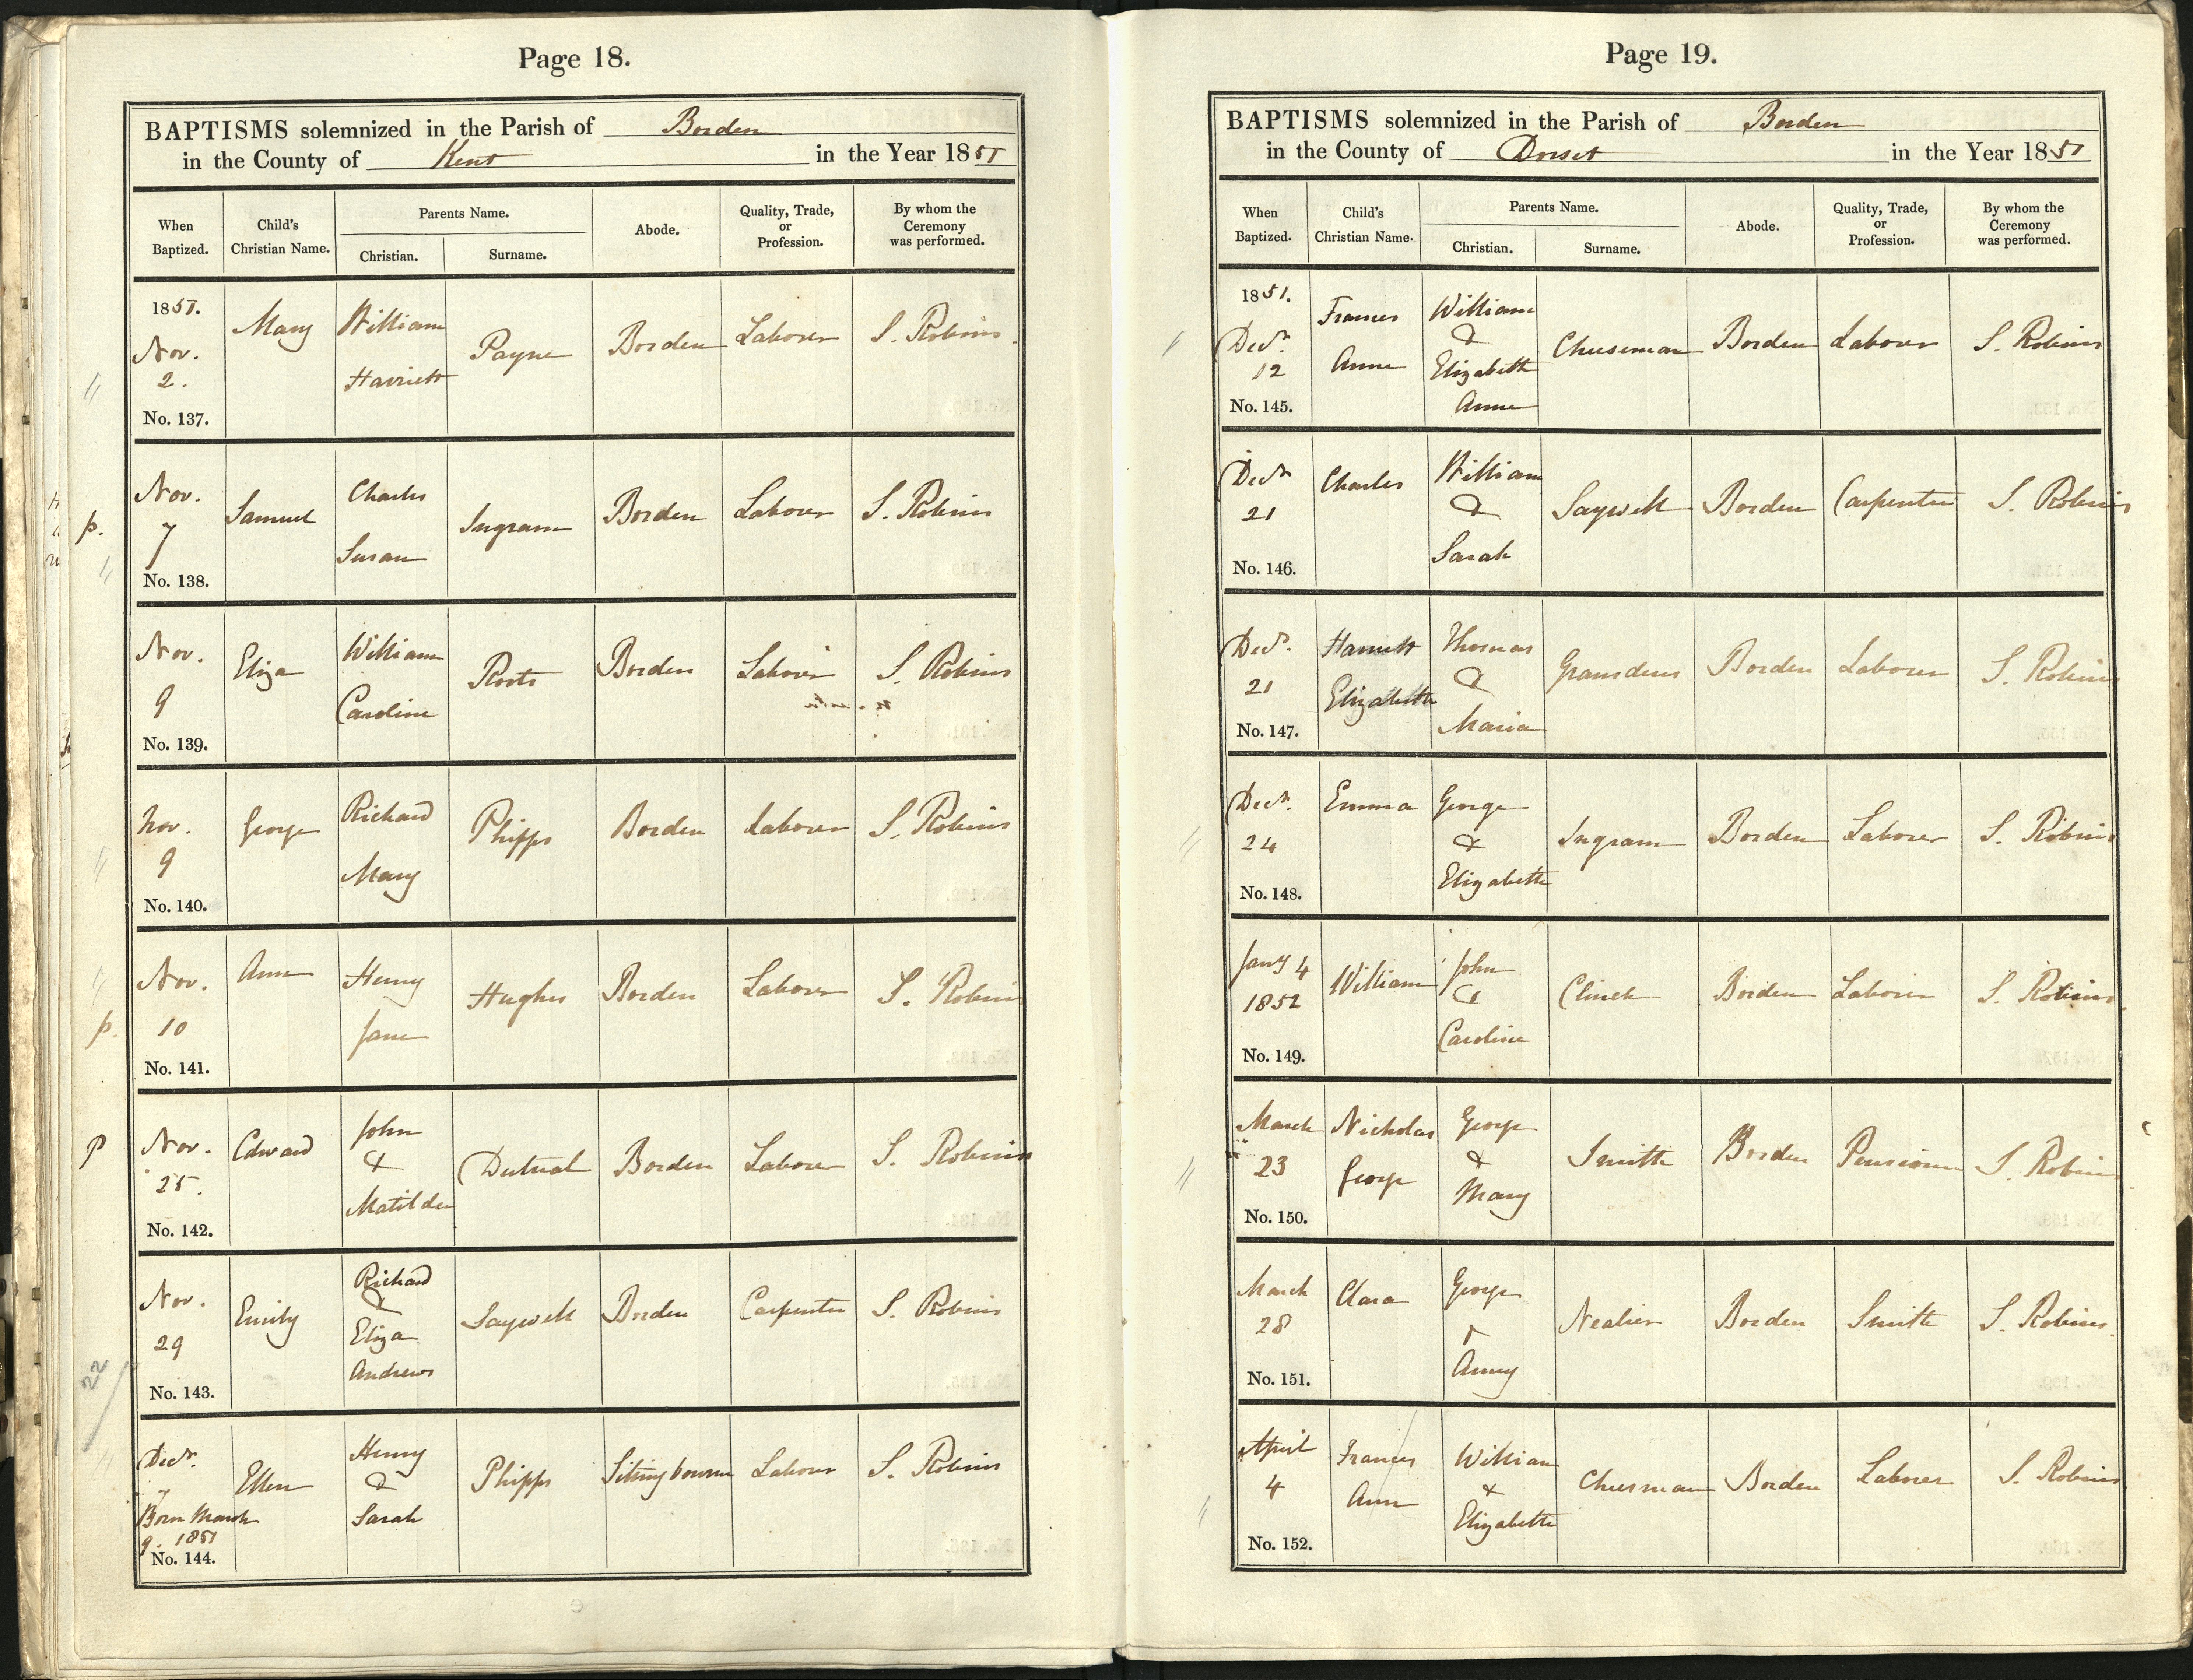 Page 18.
BAPTISMS solemnized in the Parish of Borden
in the County of Kent in the Year 1851
When Baptized. Child's Christian Name. Parents Name. Christian. Surname. Abode. Quality, Trade, or Profession. By whom the Ceremony was performed.
1851. Nov. 2. No. 137. Mary William Harriett Payne Borden Laborer S. Robins
p. Nov. 7 No. 138. Samuel Charles Susan Ingram Borden Laborer S. Robins
Nov. 9 No. 139. Eliza William Caroline Roots Borden Laborer S. Robins
Nov. 9 No. 140. George Richard Mary Phipps Borden Laborer S. Robins
p. Nov. 10 No. 141. Ann Henry Jane Hughes Borden Laborer S. Robins
p Nov. 25. No. 142. Edward John & Matilda Borden Laborer S. Robins
22 Nov. 29 No. 143. Emily Richard & Eliza Andrews Saywell Borden Carpenter S. Robins
Decr. 7 Born March 9. 1851 No. 144. Ellen Henry & Sarah Phipps Sittingbourne Laborer S. Robins
Page 19.
BAPTISMS solemnized in the Parish of Borden
in the County of Dorset in the Year 1851
When Baptized. Child's Christian Name. Parents Name. Christian. Surname. Abode. Quality, Trade, or Profession. By whom the Ceremony was performed.
1851. Decr. 12 No. 145. Frances Anne William & Elizabeth Anne Cheeseman Borden Laborer S. Robins
Decr 21 No. 146. Charles William & Sarah Saywell Borden Carpenter S. Robins
Decr. 21 No. 147. Harriett Elizabeth Thomas & Maria Gramsdens Borden Laborer S. Robins
Decr. 24 No. 148. Emma George & Elizabeth Ingram Borden Laborer S. Robins
Jany 4 1852 No. 149. William John & Caroline Clinch Borden Laborer S. Robins
March 23 No. 150. Nicholas George George & Mary Smith Borden Pensioner S. Robins
March 28 No. 151. Clara George & Anny Borden Smith S. Robins
April 4 No. 152. Frances Ann William & Elizabeth Cheesman Borden Laborer S. Robins